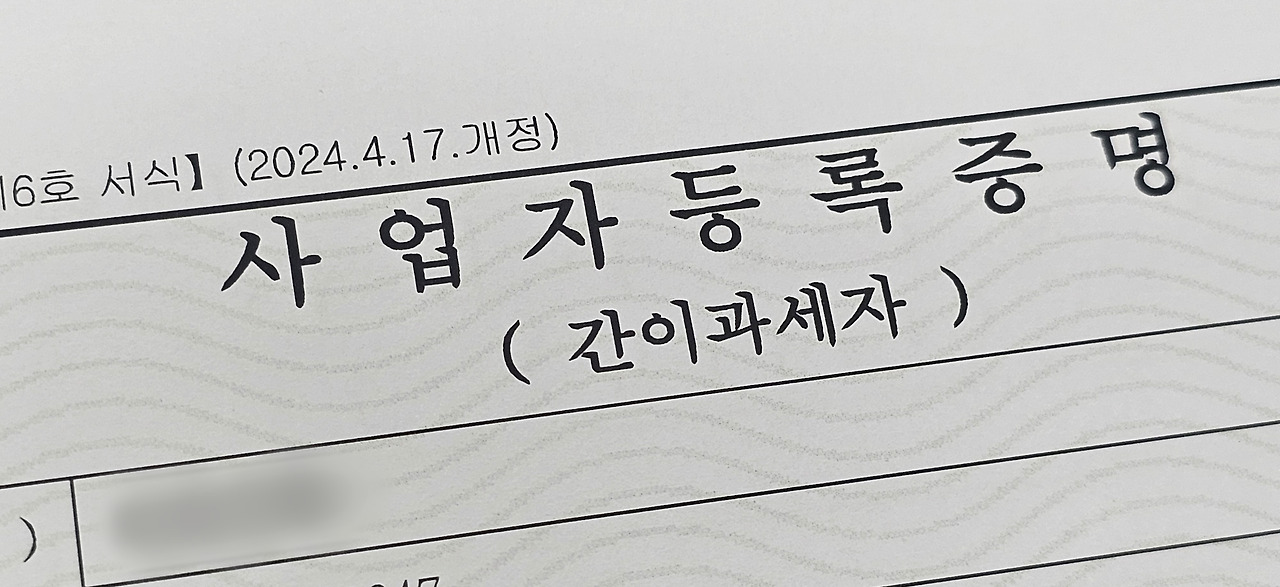 6호 서식】 (2024.4.17.개정)
사 업 자 등 록 증 명
( 간이과세자 )
)